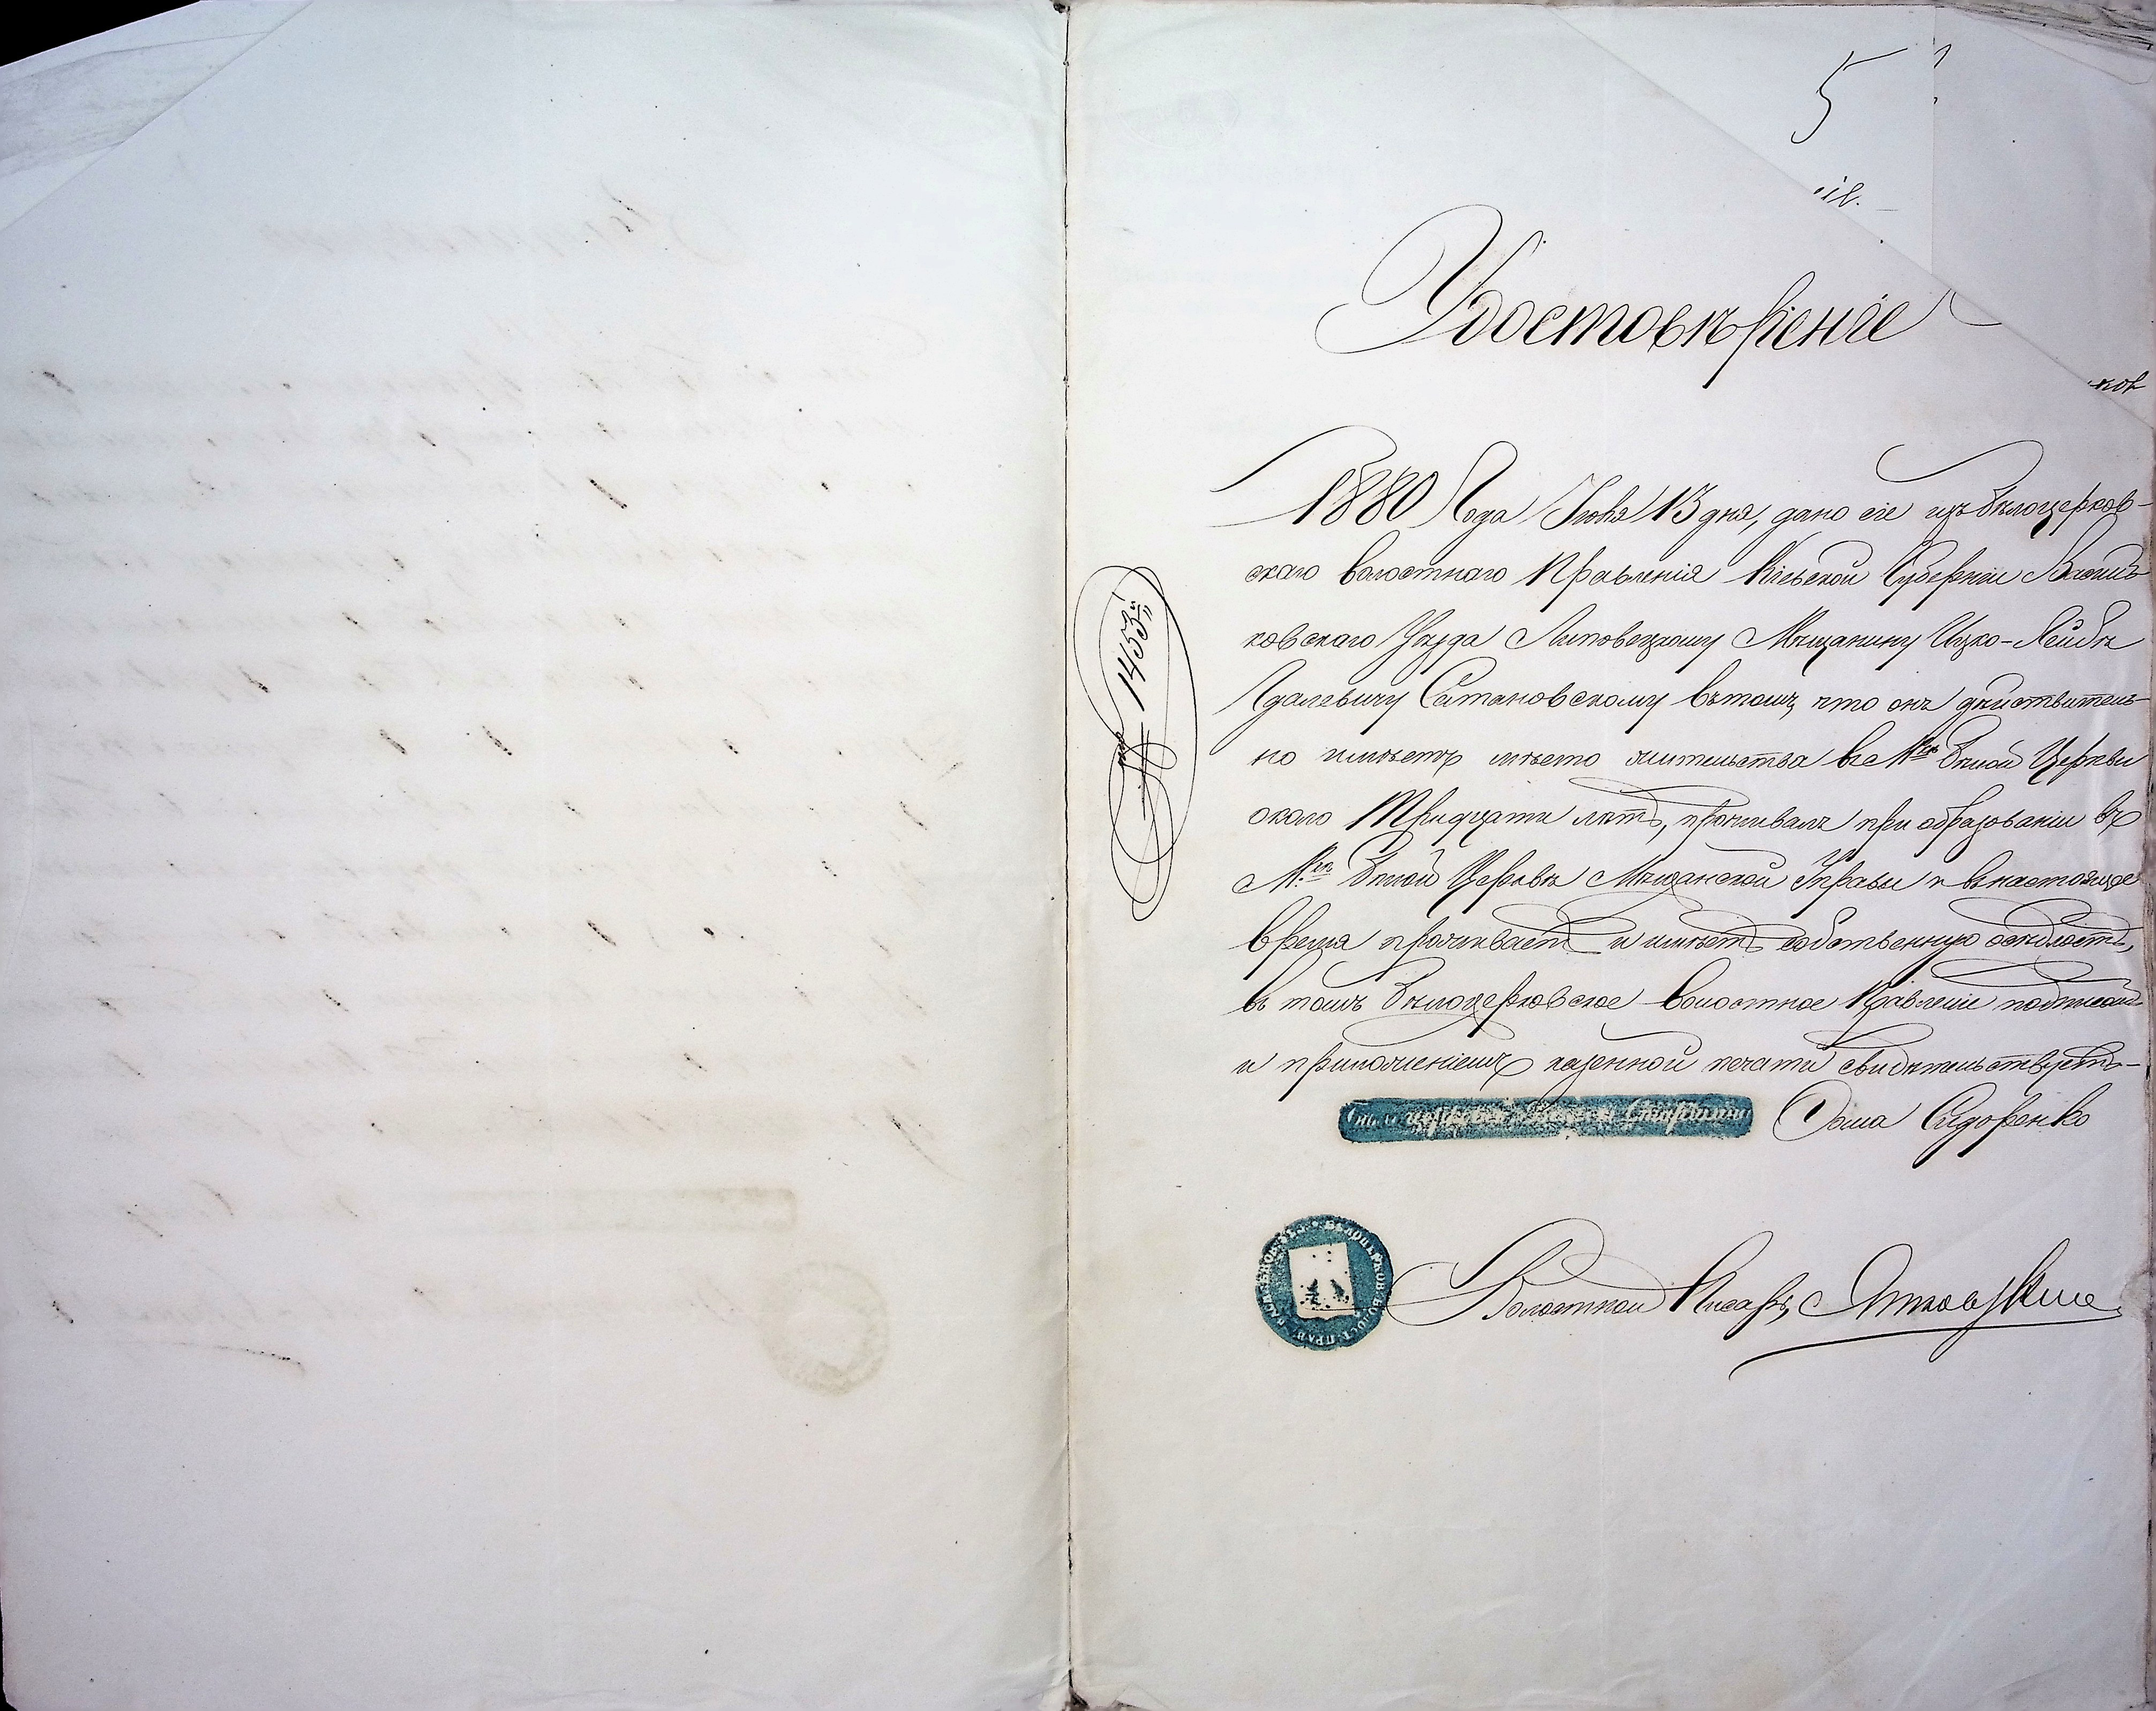 5
Удостовѣреніе
1880 Года Іюня 13 дня, дано сіе изъ Бѣлоцерков-
скаго Волостнаго Правленія Кіевской Губерніи Василь
ковскаго Уѣзда Липовецкому Мѣщанину Ицко-Лейбѣ
Сатановскому въ томъ, что онъ дѣйствитель
но имѣетъ мѣсто жительства въ Мкѣ Бѣлой Церкви
около Тридцати лѣтъ, проживалъ при образованіи въ
М.кѣ Бѣлой Церквѣ Мѣщанской Управы и въ настояще
время проживаетъ и имѣетъ собственную осѣдлость,
въ томъ Бѣлоцерковское Волостное Правленіе подписомъ
и приложеніемъ казенной печати свидѣтельствуетъ-
Бѣлоцерковскій Волостной Старшина Фома Сидоренко
№ 1453й
Волостной Писарь